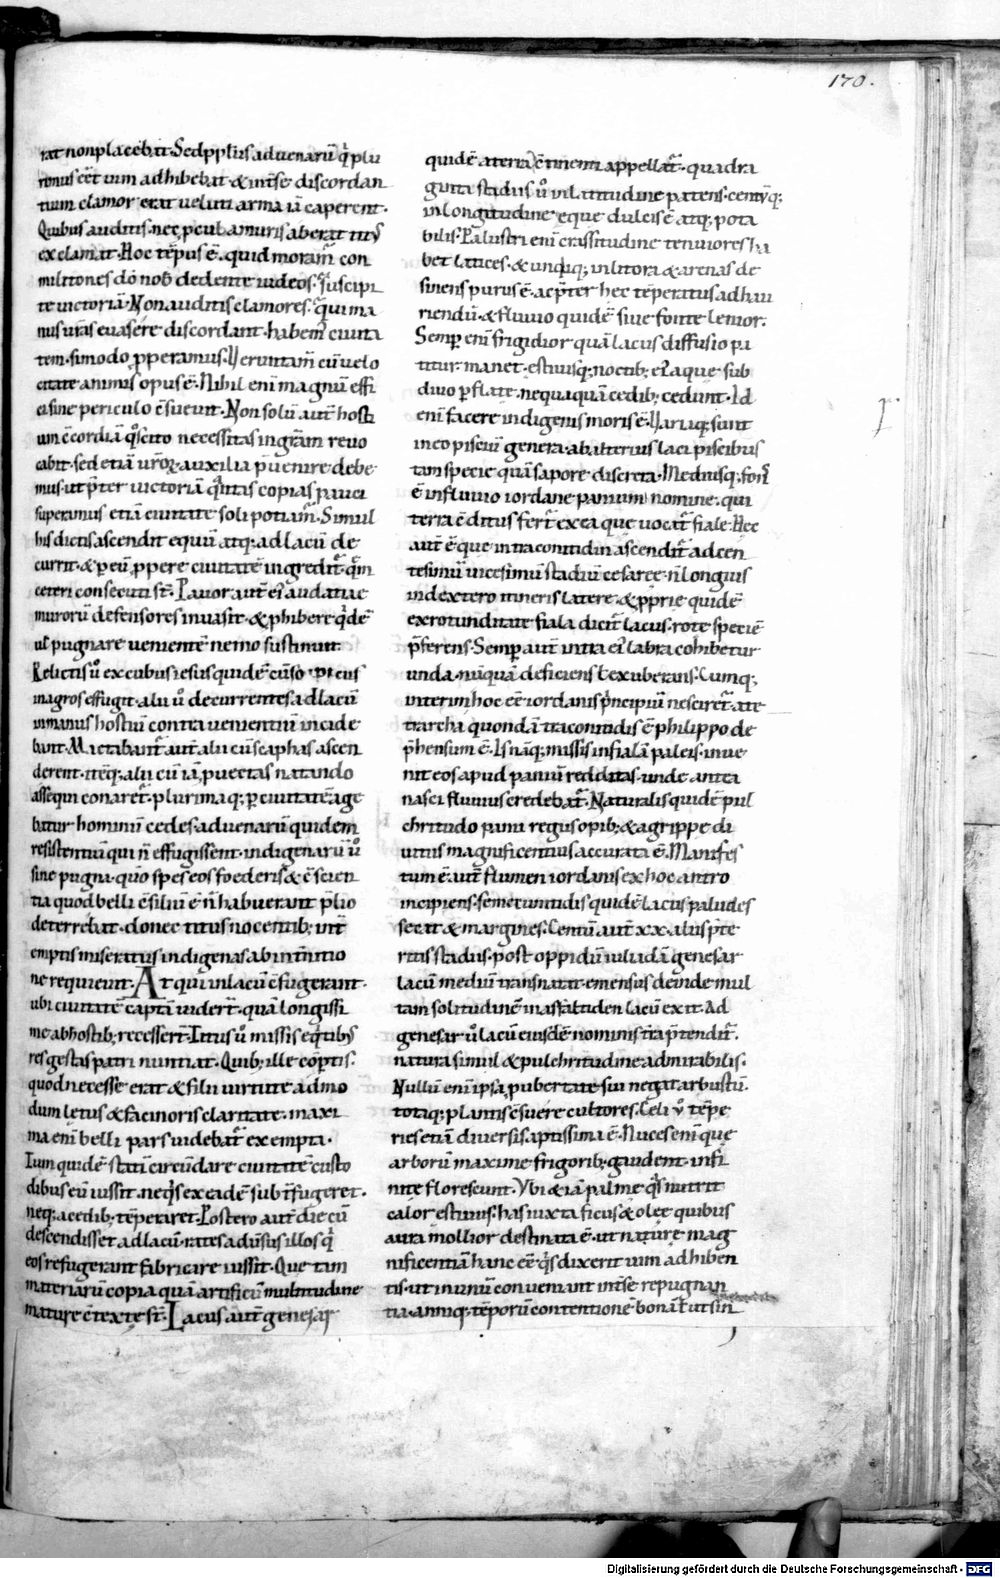 170.
rat non placebat. Sed ppłus aduenarũ q̇ plu
rimus eēt uim adhibebat & int̄ se discordan
tium clamor erat ueluti arma iã caperent.
Quibus auditis. nec p̱cul a muris aberat titꝰ
exclamat. Hoc tẽpus ē. quid moram̃ con
militones dō nob dedente iudeos. suscipi
te uictoriã. Non auditis clamores. qui ma
nus uras euasere discordant. habem̃ ciuita
tem. si modo p̱peramus. Veruntam̃ cũ uelo
citate animis opus ē. Nihil eni magnũ effi
ci sine periculo ēsueuit. Non solũ aut̃ hosti
um ēcordiã q̃ scito necessitas in gr̃am reuo
cabit. sed etiã ur̃oꝝ auxilia p̃uenire debe
mus. ut p̃ter uictoriã q̃ tantas copias pauci
superamus etiã ciuitate soli potiam̃. Simul
his dictis ascendit equũ atq; ad lacũ de
currit. & p̱ eũ p̱pere ciuitatē ingredit̃. q̃m
ceteri consecuti st̃. Pauor aut̃ eiꝰ audaciae
muroru defensores inuasit. & phibere q̇dē
uł pugnare uenientē nemo sustinuit.
Relictis ů excubiis iesus quidē cũ so
in agros effugit. alii ů decurrentes ad lacũ
in manus hostiũ contra uenientiũ incide
bant. Mactabant̃ aut̃ alii cũ scaphas ascen
derent. itẽq; alii cũ iã p̱uectas natando
assequi conarēt̃. plurimaq; p̱ ciuitatē age
batur hominũ cedes. aduenarũ quidem
resistentiũ qui ñ effugissent. indigenarũ ů
sine pugna. quos spes eos foederis & ēscien
tia quod belli ēsiliũ ē ñ habuerant p̃lio
deterrebat. donec titus nocentib; int̃
emptis miseratus indigenas ab int̃nitio
ne requieuit. At qui in lacũ ēfugerant.
ubi ciuitatē captã uider̃t. quã longissi
me ab hostib; recesser̃t. Titus ů missis eq̇tibꝰ
res gestas patri nuntiat. Quib; ille cōptis.
quod necesse erat & filii uirtute admo
dum letus & facinoris claritate. maxi
ma eni belli pars uidebat̃ exempta.
Tum quidē stati circũdare ciuitatē custo
dibus eũ iussit. neq̇s ex eadē subt̃fugeret.
neq; a cedib; tẽperaret. Postero aut̃ die cũ
descendisset ad lacũ. rates aduũsus illos q̇
eo refugerant fabricare iussit. Que tam
materiarũ copia quã artificũ multitudine
mature ētexte st̃. Lacus aut̃ genesar
quidē a terra ētinenti appellat̃. quadra
ginta stadiis ů in latitudine patens. centũq;
in longitudine eque dulcis ē atq; pota
bilis. Palustri eni crassitudine tenuiores ha
bet latices. & undiq; in litora & arenas de
sinens purus ē. ac p̃ter hec tẽperatus ad hau
riendũ. & fluuio quidē siue fonte lenior.
Semp̱ eni frigidior quã lacus diffusio pa
titur manet. estiuisq; noctib; eiꝰ aque sub
diuo p̱flate. nequaquã cedib; cedunt. Id
eni facere indigenis moris ē. Variiq; sunt
in eo pisciũ genera. ab alterius laci piscibus
tam specie quã sapore discreta. Mediusq; fonꝰ
ē influuio iordane panium nomine. qui
terra ēditus fert̃ ex ea que uocat̃ fiale. Hec
aut̃ ē que in traconitidin ascendit̃ ad cen
tesimũ uicesimũ stadiũ cesaree. ñ longius
in dextero itineris latere. & p̱prie quidē
ex rotunditate fiala dicit̃ lacus. rote speciē
p̃ferens. Semp̱ aut̃ intra eiꝰ labra cohibetur
unda. nũquã deficiens ł exuberans. Cumq;
interim hoc eē iordanis p̃ncipiũ nesciret̃. a te
trarcha quondã traconitidis ē philippo de
p̃hensum ē. Is nãq; missis in fialã paleis. inue
nit eos apud paniũ redditas. unde antea
nasci fluuius credebat̃. Naturalis quidē pul
chritudo panii regiis opib; & agrippe di
uitiis magnificentius accurata ē. Manifes
tum ē aut̃ flumen iordanis ex hoc antro
incipiens. semetunitidis quidē lacus paludes
secat & margines. Centũ aut̃ xx. aliis p̃te
ritis stadiis. post oppidũ iuliadã genesar
lacũ mediũ transnatat. emensus deinde mul
tam solitudinē in asfaltiden lacũ exit. Ad
genesar ů lacũ eiusdē nominis tr̃a p̃tendit̃.
natura simul & pulchritudine admirabilis.
Nullũ eni ipsa p̱ ubertate sui negat arbustũ.
totiq; plantis ēsuere cultores. Celi ů tẽpe
ries etiã diuersis aptissima ē. Nuces eni que
arborũ maxime frigorib; gaudent. infi
nite florescunt. Vbi & iã palme q̃s nutrit
calor estiuus. has iuxta ficus & olee quibus
aura mollior destinata ē. ut nature mag
nificentiã hanc eē q̇s dixerit uim adhiben
tis. ut in unũ conueniant int̄ se repugnan
tia. anniq; tẽporũ contentionē bonã ł ut sin
Digitalisierung gefördert durch die Deutsche Forschungsgemeinschaft - DFG